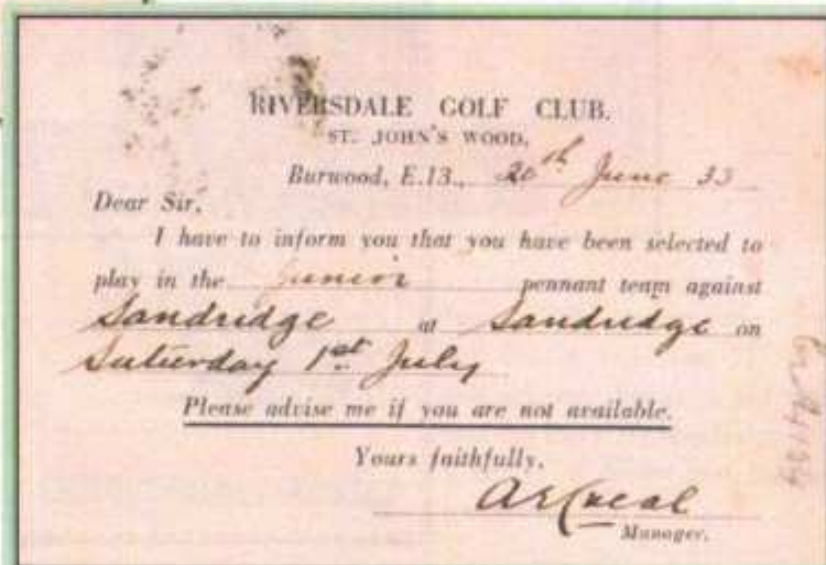 RIVERSDALE GOLF CLUB.
ST. JOHN'S WOOD,
Burwood, E.13., 20th June 33
Dear Sir,
I have to inform you that you have been selected to
play in the Junior pennant team against
Sandridge at Sandridge on
Saturday 1st July
Please advise me if you are not available.
Yours faithfully,
Manager.